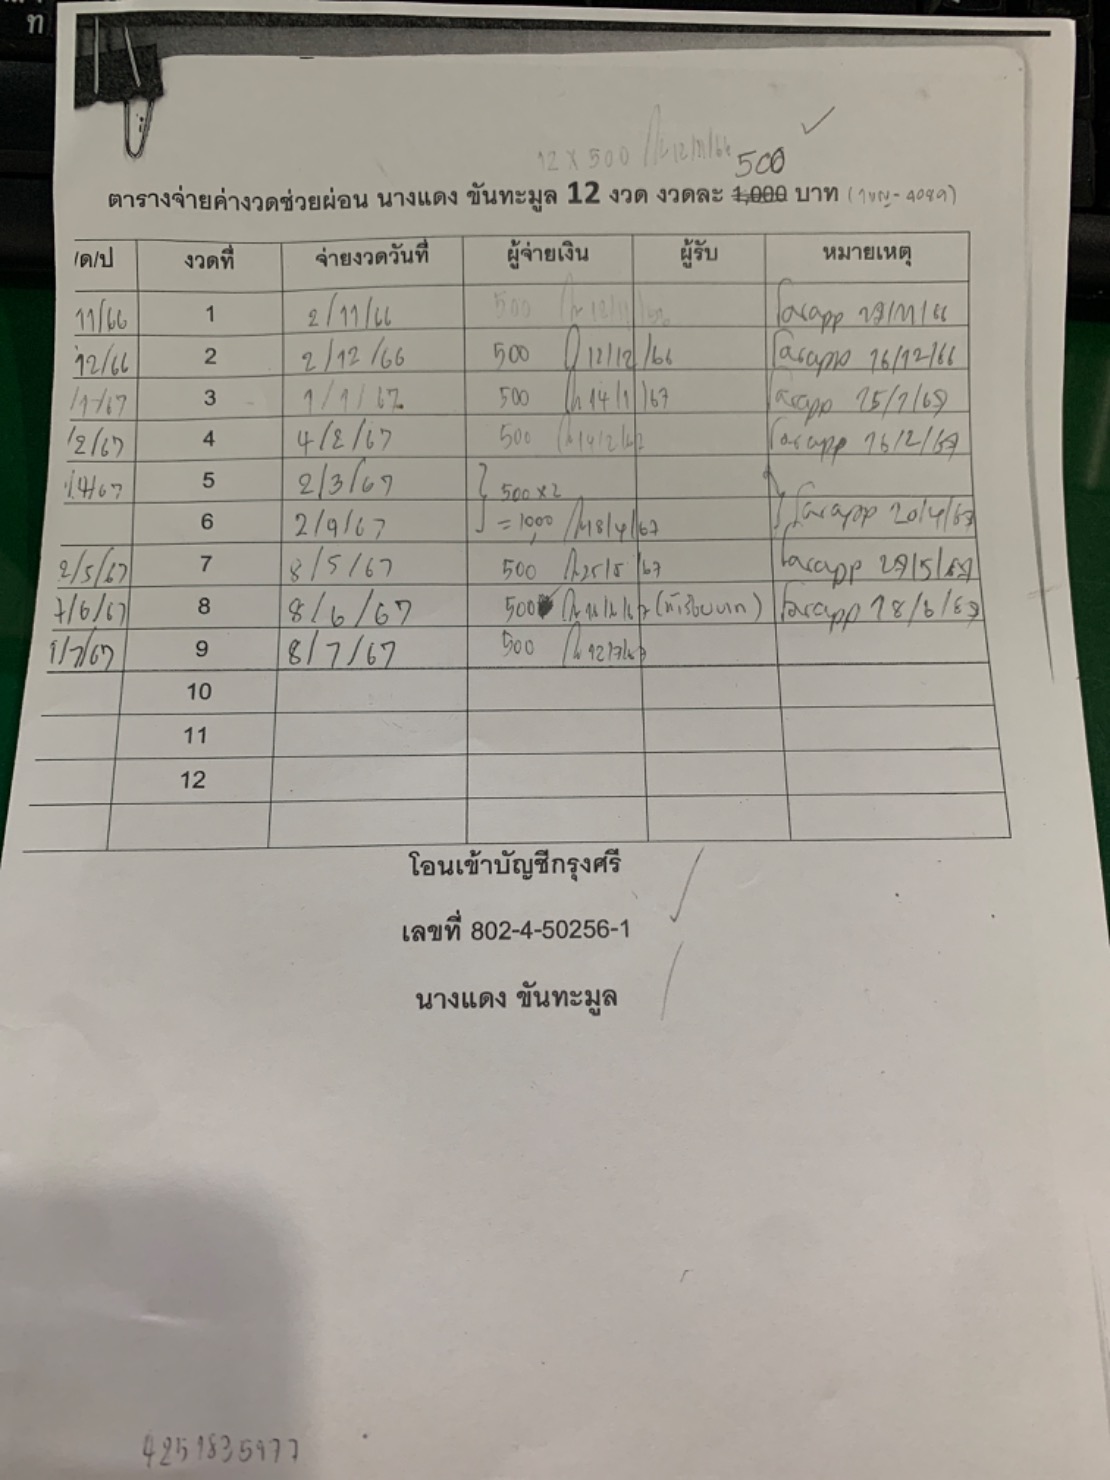 ท
12 x 500 12/11/66
500
ตารางจ่ายค่างวดช่วยผ่อน นางแดง ขันทะมูล 12 งวด งวดละ 1,000 บาท
/ด/ป งวดที่ จ่ายงวดวันที่ ผู้จ่ายเงิน ผู้รับ หมายเหตุ
11/66 1 2/11/66 500
12/66 2 2/12/66 500 12/12/66 16/12/66
/1/67 3 1/1/67 500 14/1/67 15/1/67
/2/67 4 4/2/67 500 14/2/67 16/2/67
/4/67 5 2/3/67 500 x 2
6 = 1,000 18/4/67 20/4/67
2/5/67 7 8/5/67 500 25/5/67 27/5/67
7/6/67 8 8/6/67 500 18/6/67
/7/67 9 8/7/67 500 12/7/67
10
11
12
โอนเข้าบัญชีกรุงศรี
เลขที่ 802-4-50256-1
นางแดง ขันทะมูล
4251835977